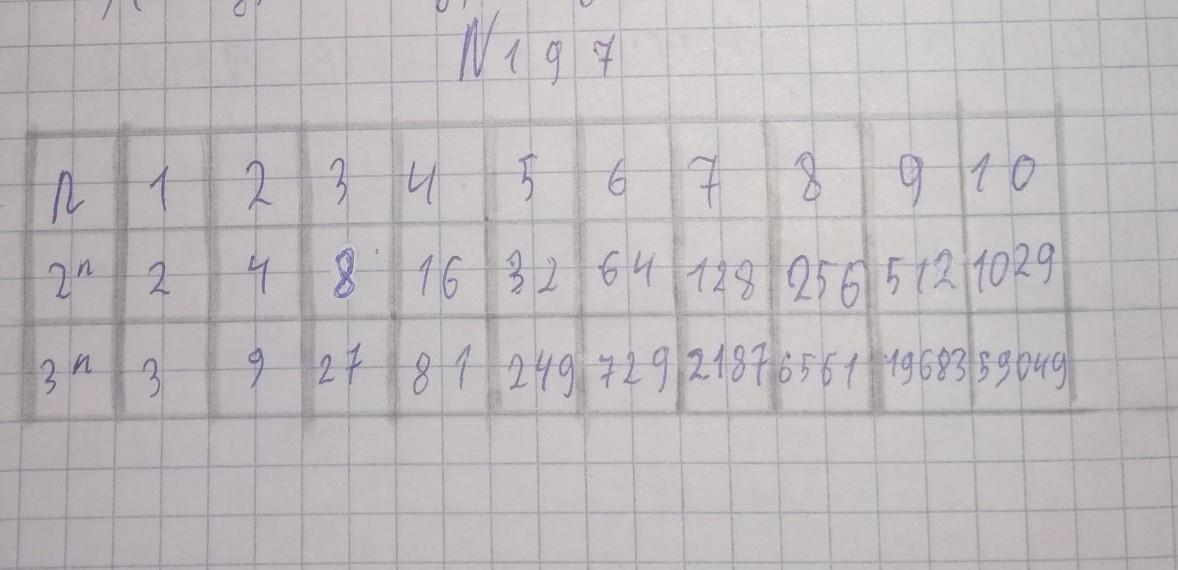 N 197
n 1 2 3 4 5 6 7 8 9 10
2ⁿ 2 4 8 16 32 64 128 256 512 1029
3ⁿ 3 9 27 81 249 729 2187 6561 19683 59049